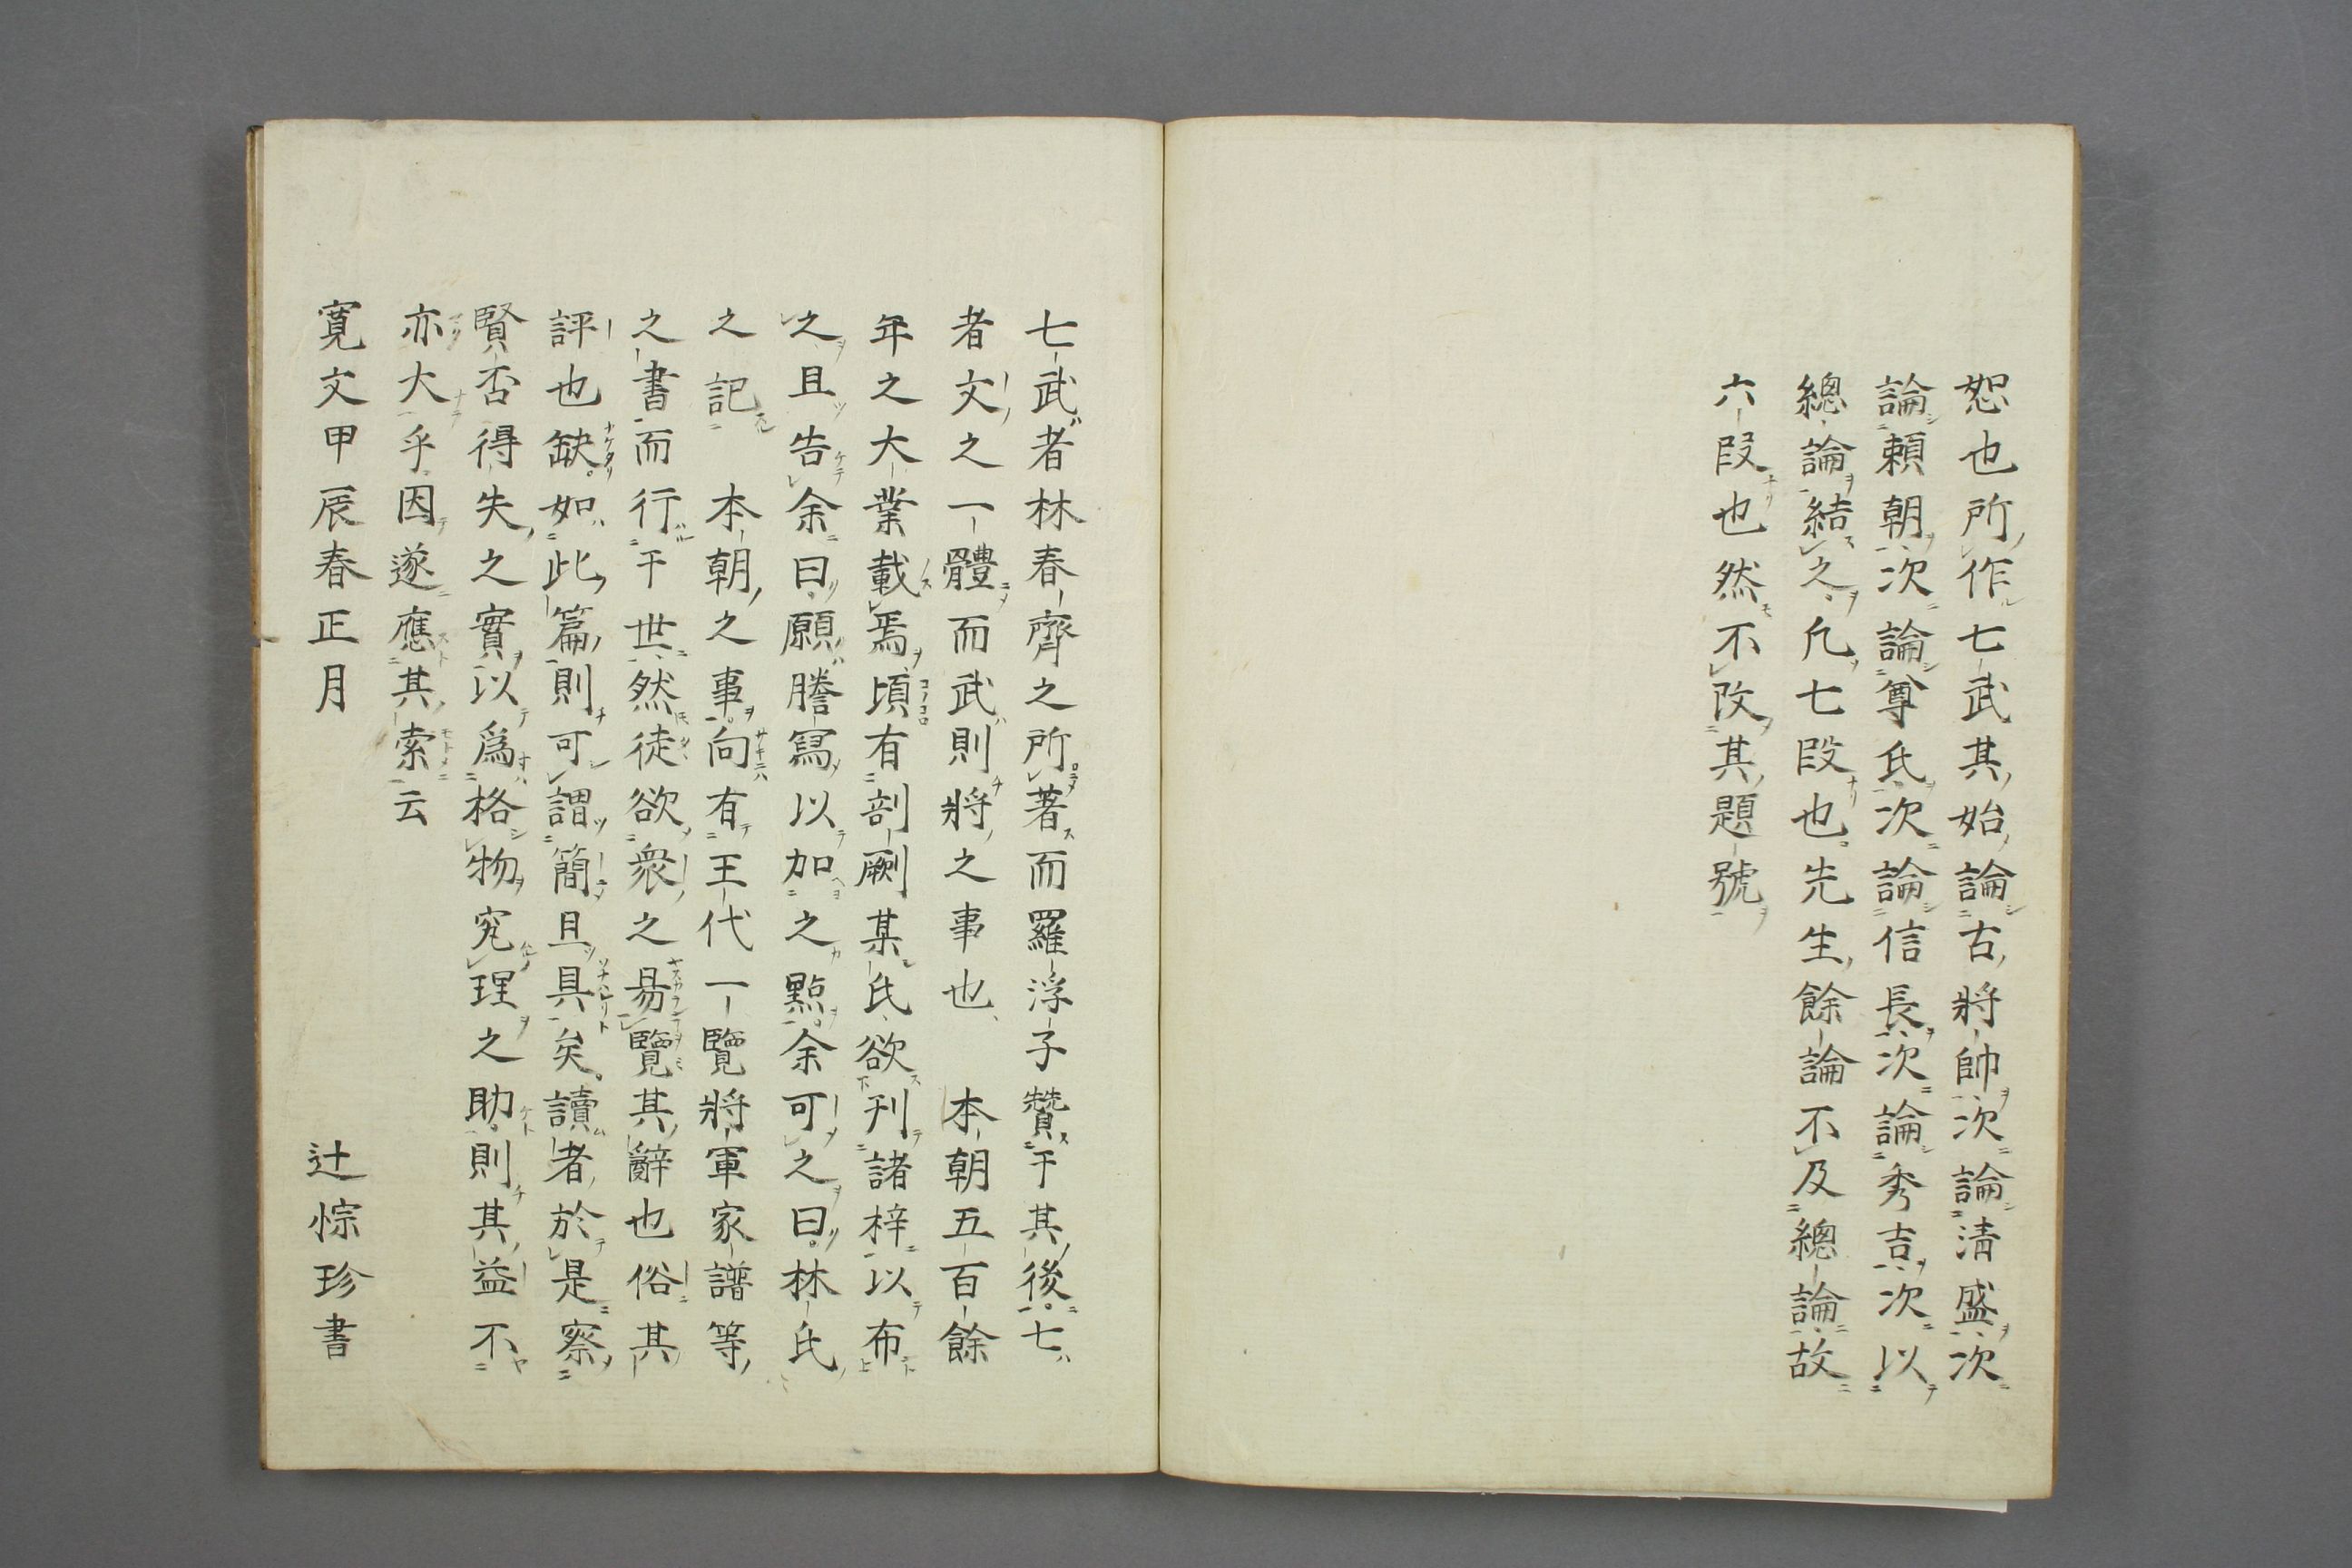 恕也所作七武其始論古將帥次論淸盛次
論頼朝次論尊氏次論信長次論秀吉次以
總論結之凢七段也先生餘論不及總論故
六段也然不改其題號
七武者林春齊之所著而羅浮子贊于其後七
者文之一體而武則將之事也　本朝五百餘
年之大業載焉頃有剞劂某氏欲刊諸梓以布
之且告余曰願謄寫以加之點余可之曰林氏
之記　本朝之事向有王代一覽將軍家譜等
之書而行于世然徒欲衆之易覽其辭也俗其
評也缺如此篇則可謂簡且具矣讀者於是察
賢否得失之實以爲格物究理之助則其益不
亦大乎因遂應其索云
寬文甲辰春正月
辻悰珍書